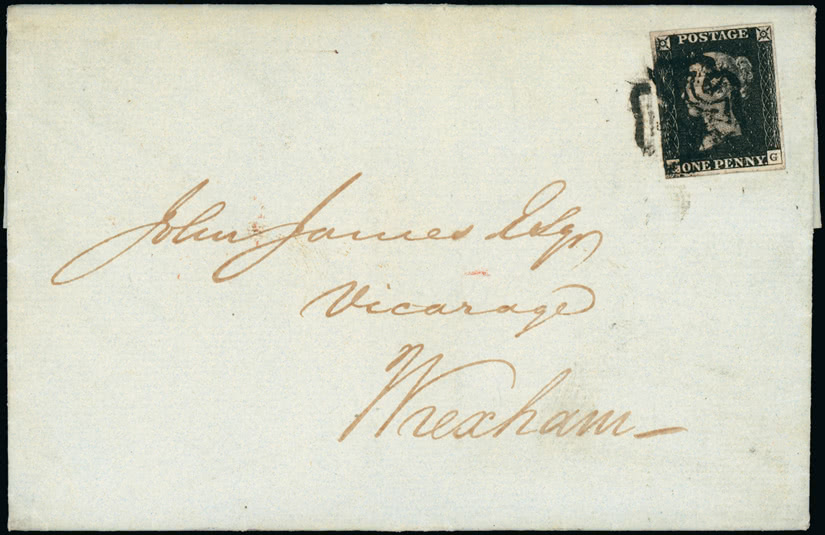 POSTAGE
ONE PENNY
G
John James Esqr
Vicarage
Wrexham